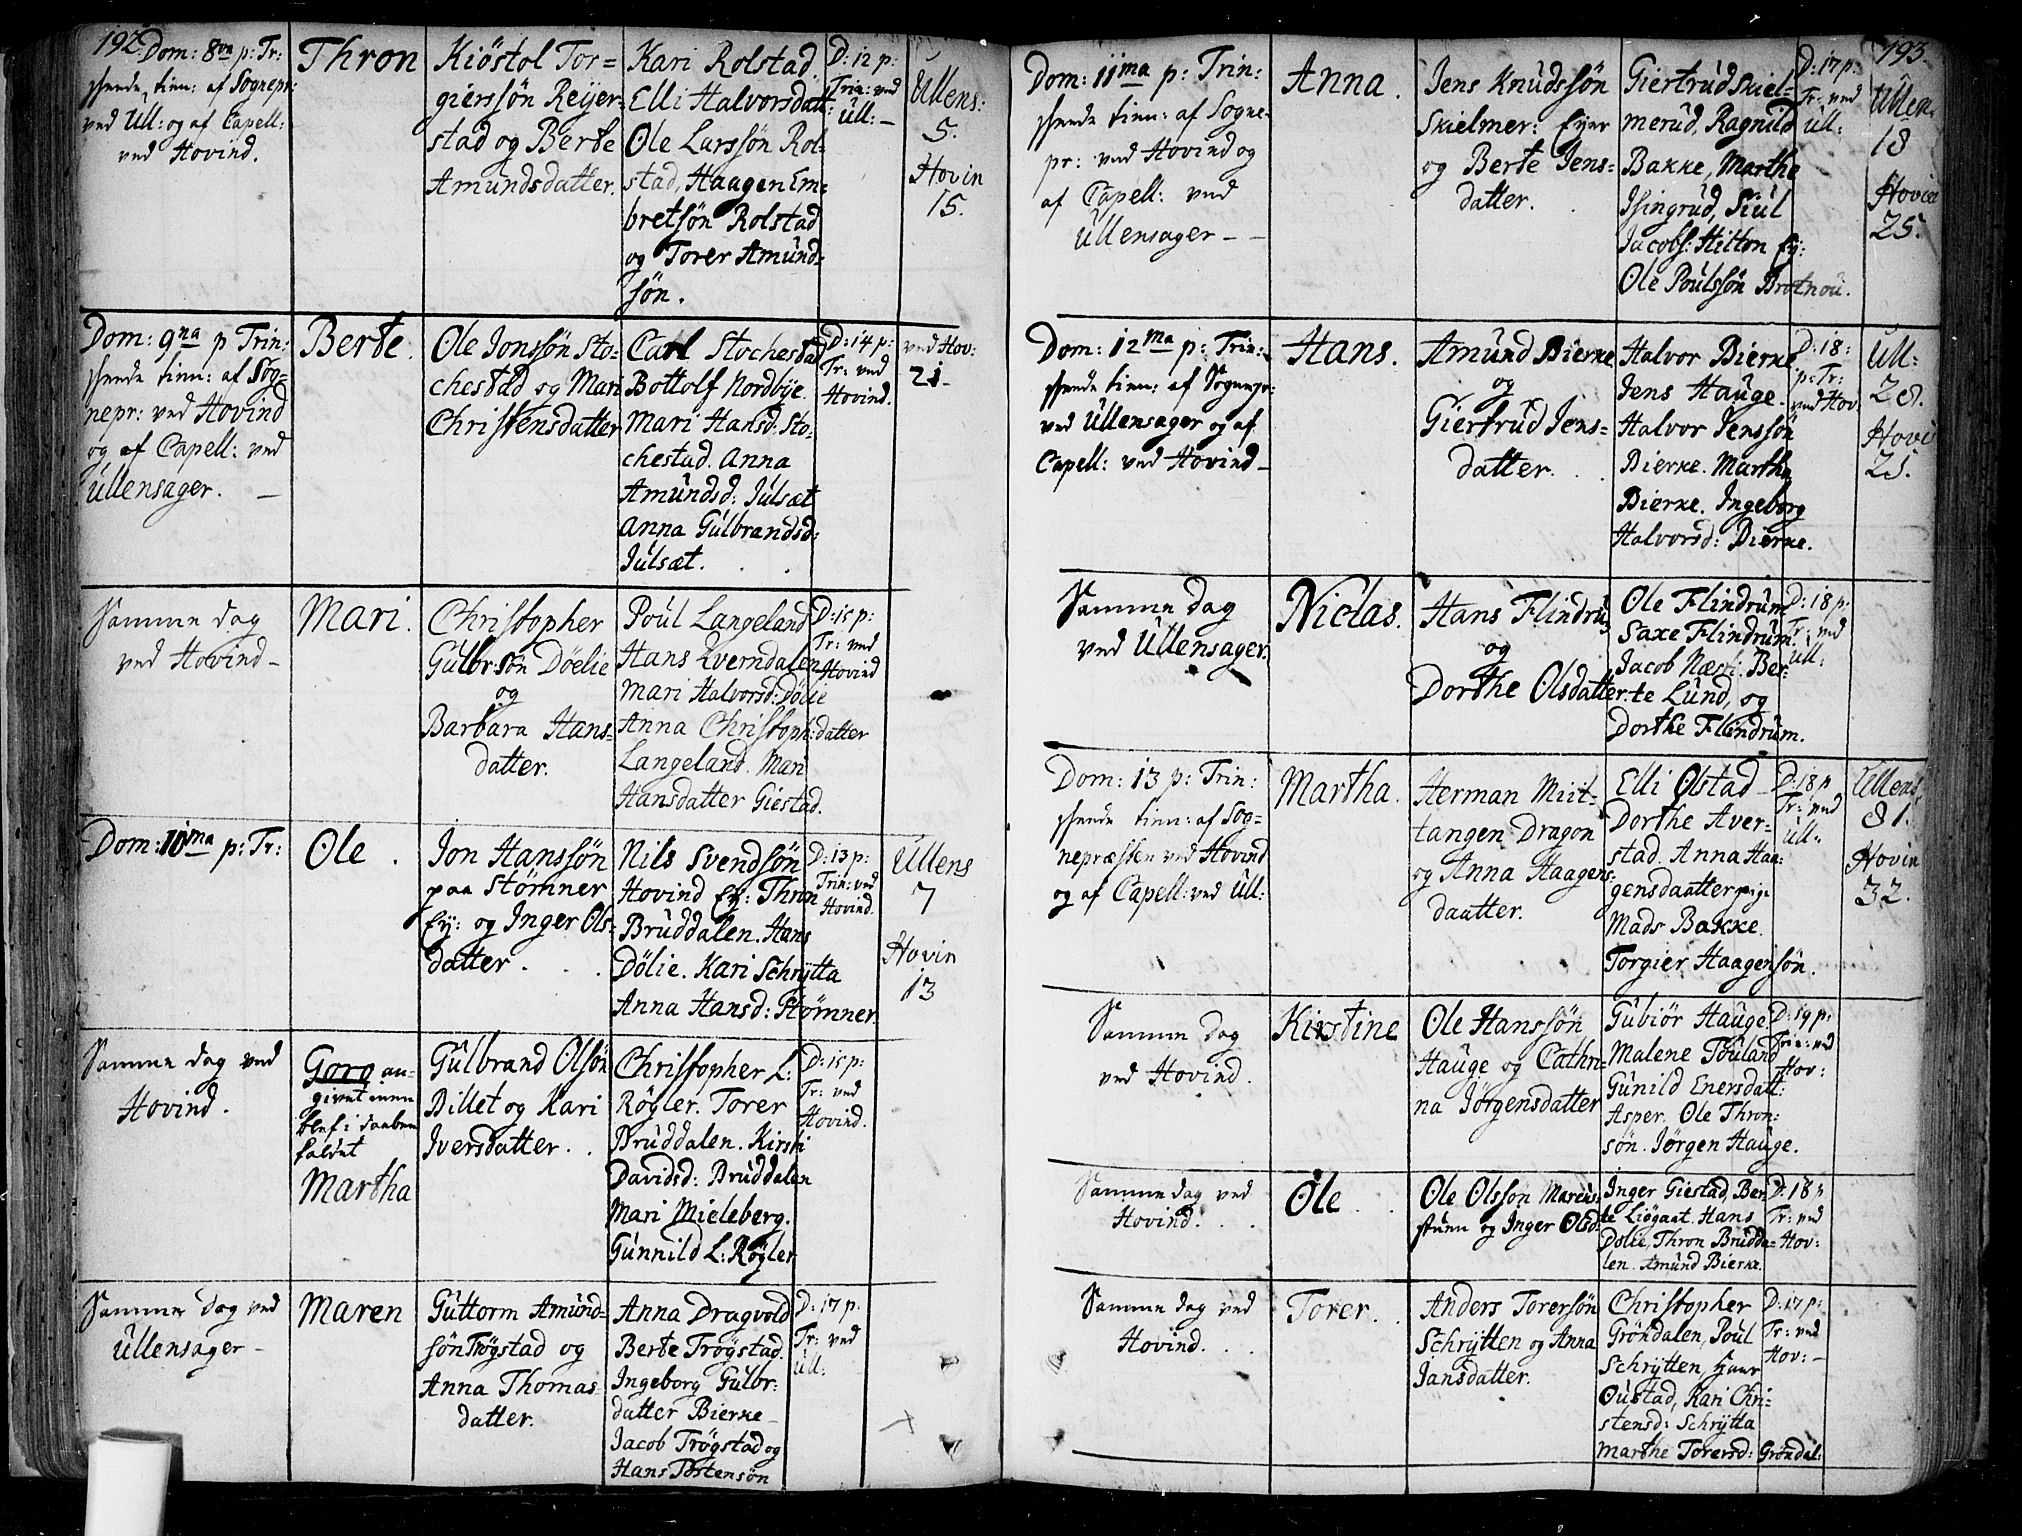 192.
Dom: 8va p: Tr:
tienn: af Sognepr:
ved Ull: og af Capell:
ved Hovind.
Thron
Kiöstol Tor=
gierssön Reijer=
stad og Berte
Amundsdatter.
Kari Rolstad
Elli Halvorsdatt:
Ole Larssön Rol=
stad, Haagen Em=
bretsön Rolstad
og Torer Amund=
sön.
D: 12 p:
Trin: ved
Ull: -
Ullens:
5.
Hovin
15.
Dom: 9na p Trin:
tienn: af Sog=
nepr: ved Hovind
og af Capell: ved
Ullensager. -
Berte.
Ole Jonssön Sto=
chestad og Mari
Christensdatter
Carl Stochestad
Bottolf Nordbÿe.
Mari Hansd: Sto=
chestad. Anna
Amundsd: Julsæt
Anna Gulbrandsd:
Julsæt.
D: 14 p:
Tr: ved
Hovind.
ved Hov:
21.
Samme dag
ved Hovind -
Mari.
Christopher
Gulbr:sön Döelie
og
Barbara Hans=
datter.
Poul Langeland
Hans Kverndalen
Mari Halvorsd: Dölie
Anna Christoph:datter
Langeland. Mari
Hansdatter Giestad.
D: 15 p:
Tr: ved
Hovind
Dom: 10ma p: Tr:
Ole.
Jon Hanssön
paa Stömner
Eÿ: og Inger Ols=
datter.
Nils Svendsön
Hovind Eÿ: Thron
Bruddalen. Hans
Dölie. Kari Schrÿtta
Anna Hansd: Stömner.
D: 13 p:
Trin: ved
Hovind.
Ullens
7
Hovin
13
Samme dag ved
Hovind.
Goro an=
givet men
blef i daaben
kaldet
Martha
Gulbrand Olsön
Billet og Kari
Iversdatter.
Christopher L:
Rögler. Torer
Bruddalen. Kirsti
Davidsd: Bruddalen
Mari Mieleberg.
Gunnild L: Rögler
D: 15 p:
Tr: ved
Hovind.
Samme dag ved
Ullensager -
Maren
Guttorm Amund=
sön Trögstad og
Anna Thomas=
datter.
Anna Dragvold
Berte Trögstad.
Ingeborg Gulbr:
datter Bierke
Jacob Trögstad og
Hans Tostensön
D: 17 p:
Tr: ved
Ull:
193.
Dom: 11ma p: Trin:
tienn: af Sogne=
pr: ved Hovind og
af Capell: ved
Ullensager -
Anna.
Jens Knudssön
Skielmer: Eÿer
og Berte Jens=
datter.
Giertrud Skiel=
merud, Ragnild
Bakke, Marthe
Isingrud, Siul
Jacobs: Hilton Eÿ:
Ole Poulssön Brotnou.
D: 17 p:
Tr: ved
Ull:
Ullens
18
Hovin
25.
Dom: 12ma p: Trin:
tienn: af Sognepr:
ved Ullensager og af
Capell: ved Hovind -
Hans.
Amund Bierke
og
Giertrud Jens=
datter.
Halvor Bierke
Jens Hauge.
Halvor Jenssön
Bierke. Martha
Bierke. Ingeborg
Halvorsd: Bierke.
D: 18:
p: Tr:
ved Hov.
Ull:
28.
Hovi
25.
Samme dag
ved Ullensager.
Niclas.
Hans Flindrum
og
Dorthe Olsdatter.
Ole Flindrum
Saxe Flindrum
Jacob Næsti. Ber=
te Lund, og
Dorthe Flindrum.
D: 18 p:
Tr: ved
Ull:
Dom: 13 p: Trin:
tienn: af Sog=
nepræsten ved Hovind
og af Capell: ved Ull:
Martha.
Herman Miit=
tangen Dragon
og Anna Haagens=
daatter.
Elli Olstad
Dorthe Aver=
stad. Anna Haa=
gensdaatter pige
Mads Bakke.
Torgier Haagensön.
D: 18 p
Tr: ved
Ull:
Ullens
81.
Hovin
32.
Samme dag
ved Hovind.
Kirstine
Ole Hanssön
Hauge og Cathri=
na Jörgensdatter
Gubiör Hauge
Malene Touland
Gunild Enersdatt:
Asper. Ole Thron=
sön. Jörgen Hauge.
D: 19 p:
Trin: ved
Hov:
Samme dag ved
Hovind.
Ole
Ole Olssön Marcus=
stuen og Inger Olsd:
Inger Giestad, Ber=
te Liögaat. Hans
Dölie, Thron Brudda=
len. Amund Bierke.
D: 18 p
Tr: ved
Hov:
Samme dag ved
Hovind.
Torer.
Anders Torersön
Schrÿtten og Anna
Jansdatter.
Christopher
Gröndalen, Poul
Schrÿtten, Hans
Oustad, Kari Chri=
stensd: Schrÿtta
Marthe Torersd: Gröndal:
D: 17 p:
Tr: ved
Hov: -